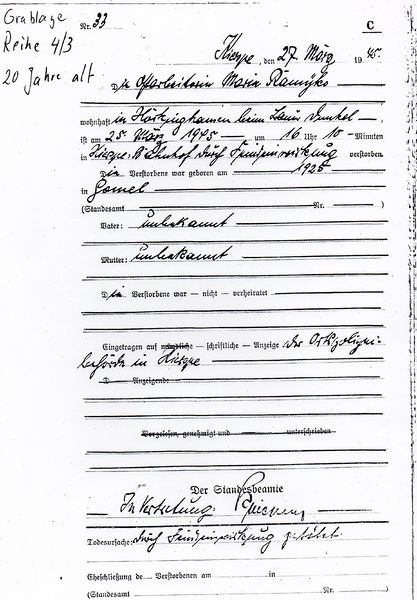 Grablage
Reihe 4/3
20 Jahre alt
Nr. 33
C
Kierspe, den 27. März 1945.
Die Ostarbeiterin Maria
wohnhaft in beim Bauer —
ist am 25. März 1945 — um 16 Uhr 10 — Minuten
in Kierspe: Bahnhof durch Feindeinwirkung verstorben
Die Verstorbene war geboren am — 1925
in Gomel
(Standesamt Nr. )
Vater: unbekannt
Mutter: unbekannt
Die Verstorbene war — nicht — verheiratet
Eingetragen auf mündliche — schriftliche — Anzeige der Ortspolizei-
behörde in Kierspe
D Anzeigende
Vorgelesen, genehmigt und unterschrieben
Der Standesbeamte
In Vertretung:
Todesursache: durch Feindeinwirkung getötet.
Eheschließung de Verstorbenen am in
(Standesamt Nr. )